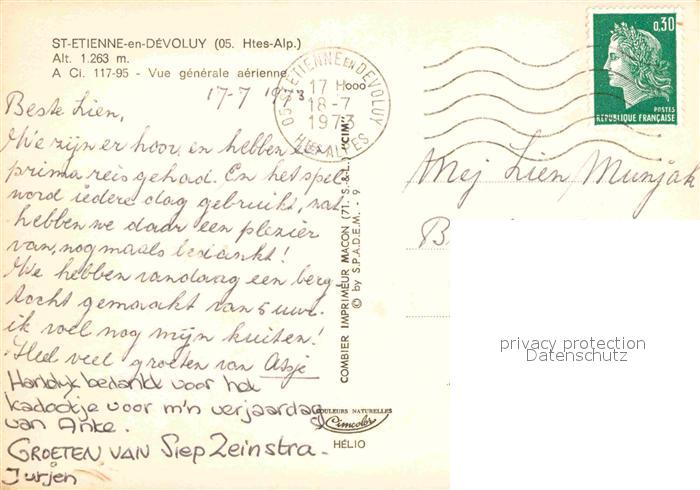 ST-ETIENNE-en-DÉVOLUY (05. Htes-Alp.)
Alt. 1.263 m.
A Ci. 117-95 - Vue générale aérienne.
17-7 1973
Beste Lien,
We zijn er hoor, en hebben een
prima reis gehad. En het spel
word iedere dag gebruikt, wat
hebben we daar een plezier
van, nogmaals bedankt!
We hebben vandaag een berg
tocht gemaakt van 5 uur.
ik voel nog mijn kuiten!
Heel veel groeten van Atje
Hartelijk bedankt voor het
kadootje voor m'n verjaardag
van Anke.
GROETEN VAN Siep Zeinstra.
Jurjen
05 ST ETIENNE EN DEVOLUY
17 H00
18-7
1973
HTES ALPES
COMBIER IMPRIMEUR MACON (71. S.-&-L.) "CIM"
© by S.P.A.D.E.M. - 9
COULEURS NATURELLES
Cimcolor
HÉLIO
0,30
POSTES
RÉPUBLIQUE FRANÇAISE
Mej Lien Munjak
B
privacy protection
Datenschutz